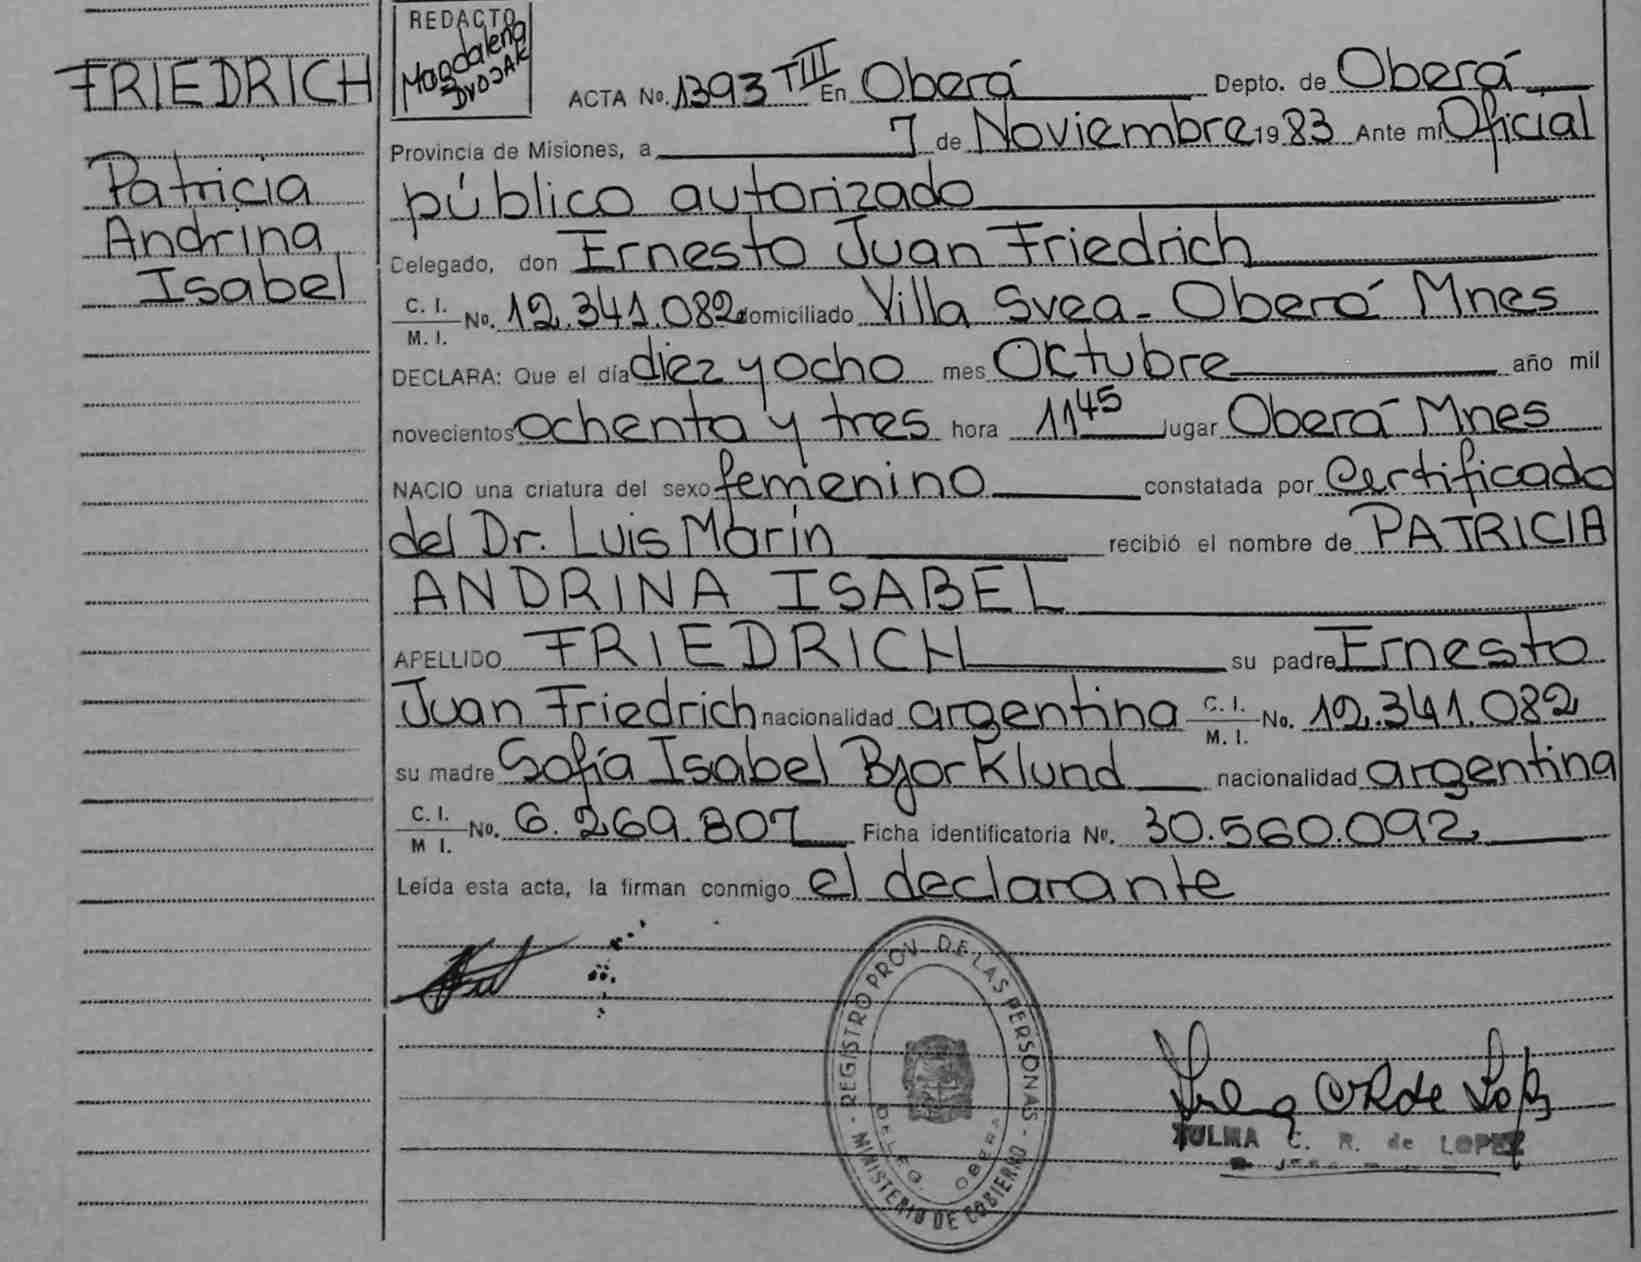 FRIEDRICH
Patricia
Andrina
Isabel
REDACTO
Magdalena
DVOJAK
ACTA No. 1393 TIII En Oberá Depto. de Oberá
Provincia de Misiones, a 7 de Noviembre 1983 Ante mi Oficial
público autorizado
Delegado, don Ernesto Juan Friedrich
C. I. / M. I. No. 12.341.082 domiciliado Villa Svea - Oberá Mnes
DECLARA: Que el día diez y ocho mes Octubre año mil
novecientos ochenta y tres hora 11 45 lugar Oberá Mnes
NACIO una criatura del sexo femenino constatada por Certificado
del Dr. Luis Marín recibió el nombre de PATRICIA
ANDRINA ISABEL
APELLIDO FRIEDRICH su padre Ernesto
Juan Friedrich nacionalidad argentina C. I. / M. I. No. 12.341.082
su madre Sofía Isabel Bjorklund nacionalidad argentina
C. I. / M I. No. 6.269.807 Ficha identificatoria No. 30.560.092
Leída esta acta, la firman conmigo el declarante
REGISTRO PROV. DE LAS PERSONAS - MINISTERIO DE GOBIERNO -
DELEG. OBERA
ZULMA C. R. de LOPEZ